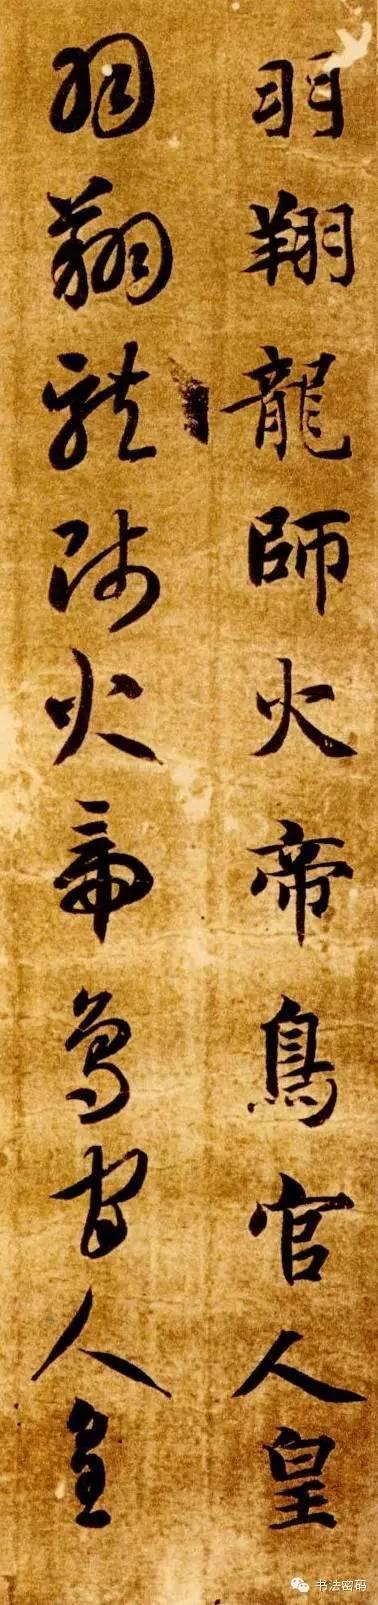 羽翔龍師火帝鳥官人皇
羽翔龍師火帝鳥官人皇
书法密码